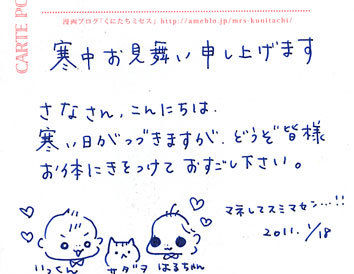 漫画ブログ「くにたちミセス」 http://ameblo.jp/mrs-kunitachi/
CARTE PO
寒中お見舞い申し上げます
さなさん、こんにちは。
寒い日がつづきますが、どうぞ皆様
お体にきをつけておすごし下さい。
マネしてスミマセン…!!
2011. 1/18
いっくん
サダヲ
はるちゃん